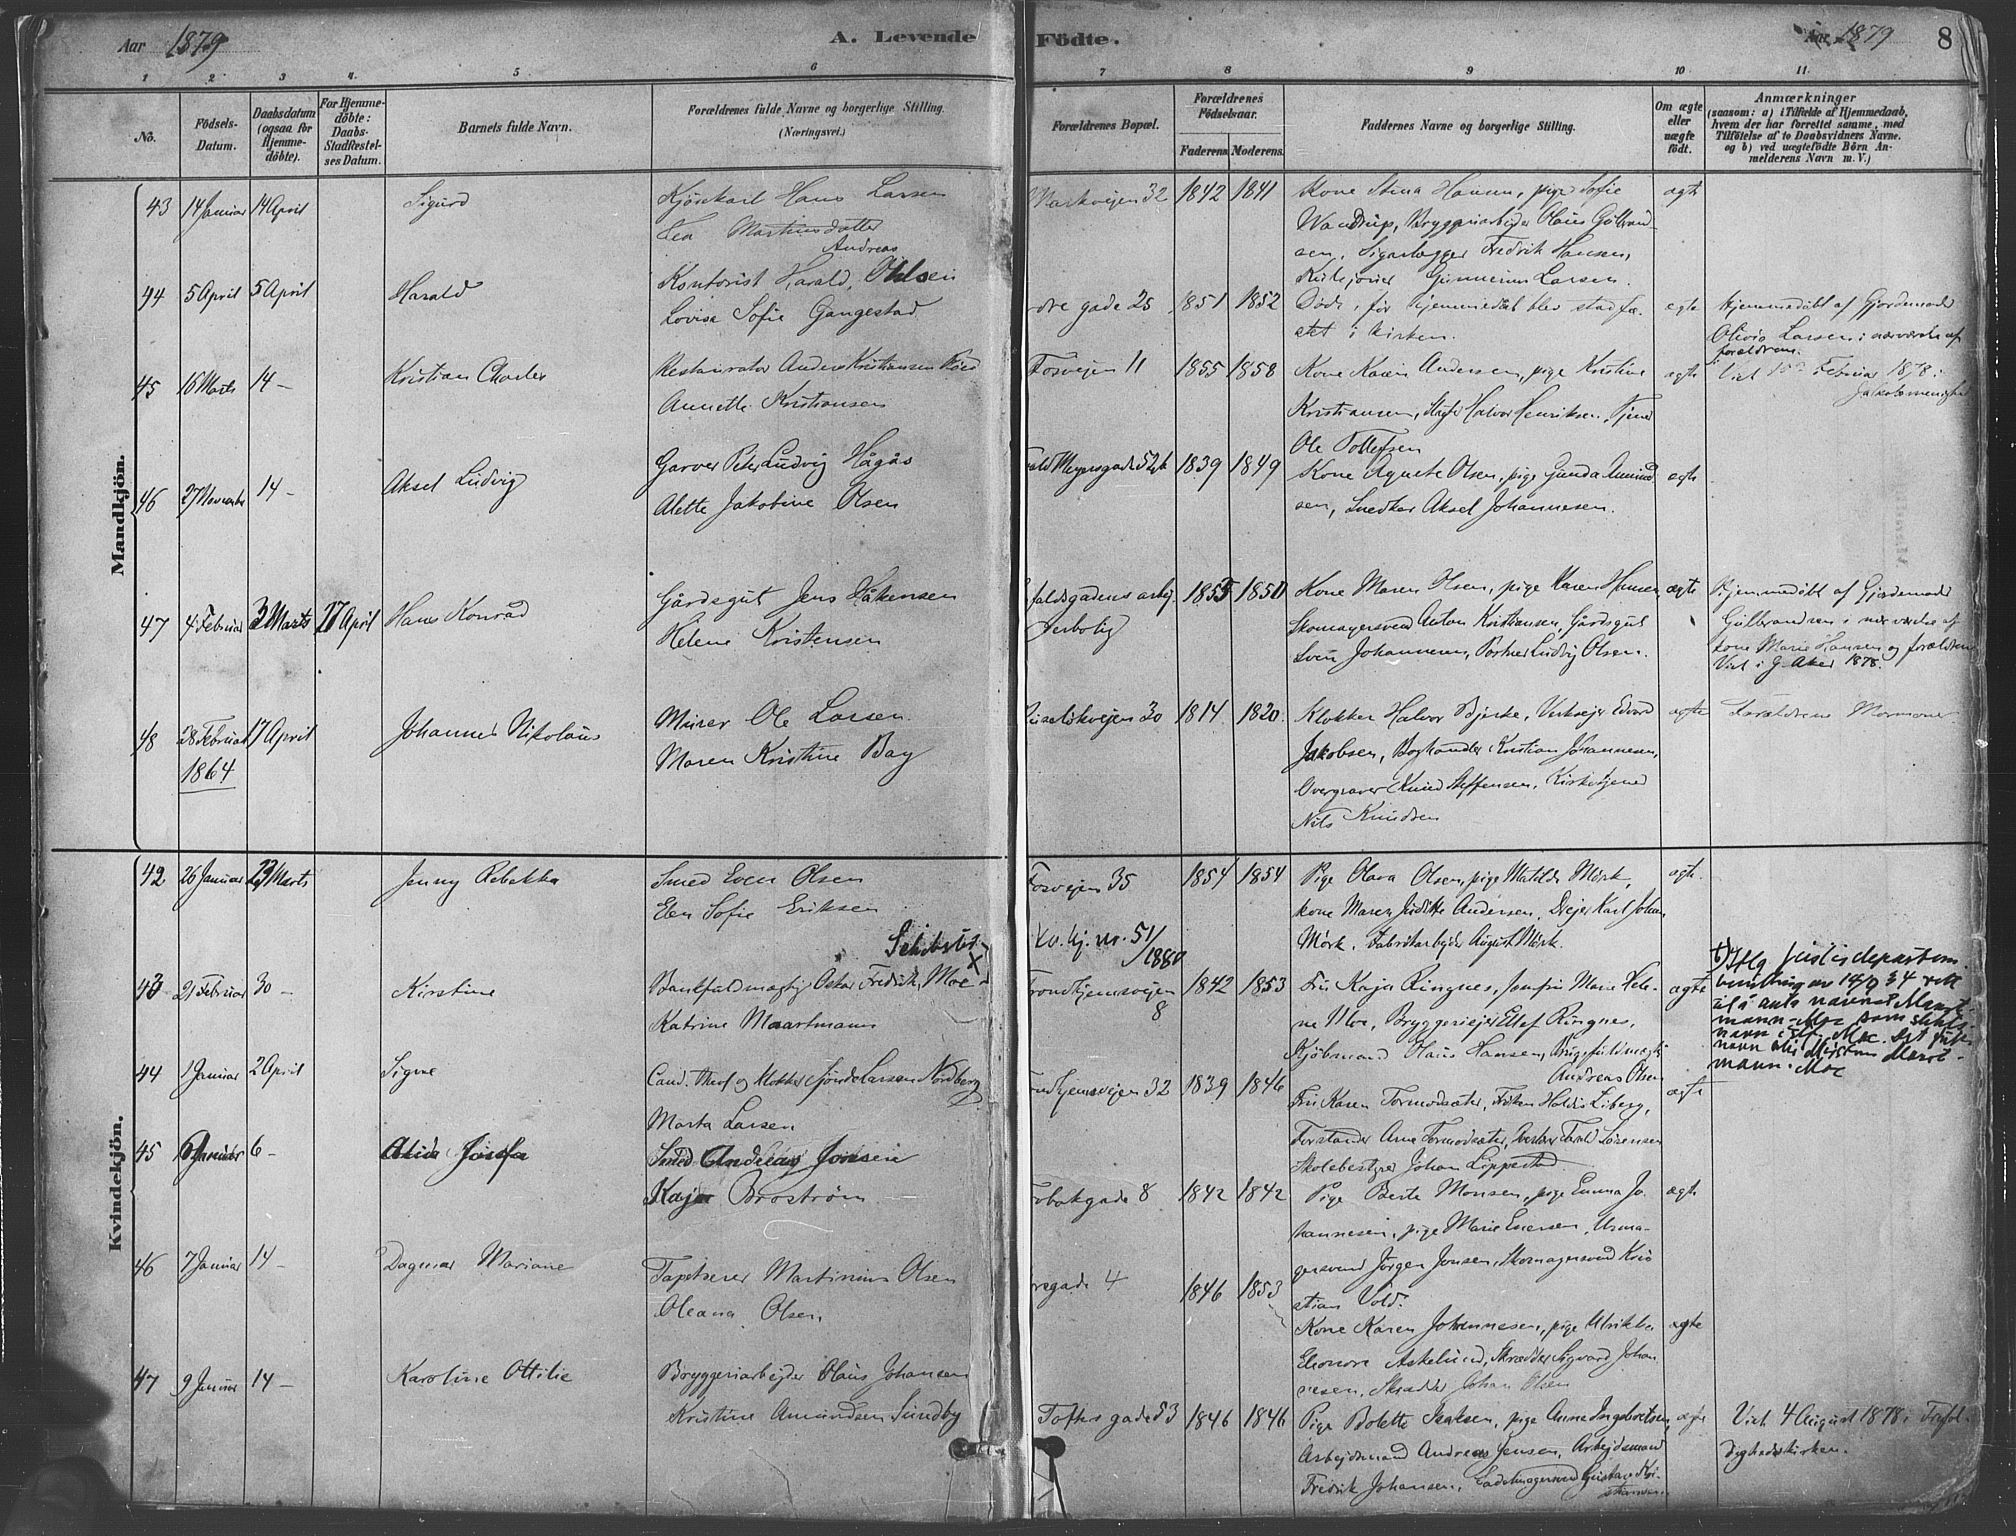 Aar 1879
A. Levende Födte.
Aar 1879
8
1 2 3 4. 5 6 7 8 9 10 11.
No.
Födsels-Datum.
Daabsdatum (ogsaa for Hjemme-döbte).
For Hjemme-döbte: Daabs-Stadfæstel-ses Datum.
Barnets fulde Navn.
Forældrenes fulde Navne og borgerlige Stilling. (Næringsvei.)
Forældrenes Bopæl.
Forældrenes Födselsaar.
Faderens. Moderens.
Faddernes Navne og borgerlige Stilling.
Om ægte eller uægte födt.
Anmærkninger
(saasom: a) i Tilfælde af Hjemmedaab,
hvem der har forrettet samme, med
Tilföielse af to Daabsvidners Navne.
og b) ved uægtefödte Börn An-
melderens Navn m. V.)
Mandkjön.
43 14 Januar 14 April Sigurd Kjörekarl Hans Larsen
Lea Martinsdatter
Markveien 32 1842 1841 Kone Stina Hansen, pige Sofie
Wandrup, Bryggeriarbeider Olaus Gulbrand-
sen, Sigarlægger Fredrik Hansen,
Larsen. ægte
44 5 April 5 April Harald Kontorist Harald Andreas Ohlsen
Lovise Sofie Gangestad
dre gade 25 1851 1852 Döde, för hjemmedåb blev stadfæ-
stet i kirken. ægte
Hjemmedöbt af Gjordemoder
Olivia Larsen i nærværelse af
forældrene.
45 16 Marts 14 - Kristian Charles Restauratör Anders Kristiansen
Annette Kristiansen
Fosveien 11 1855 1858 Kone Karen Andersen, pige Kristine
Kristiansen, Halvor Henriksen,
Ole Tollefsen ægte
Viet Februar 1878 i
Jakobs menighed
46 27 November 14 - Aksel Ludvig Garver Peter Ludvig Hågås
Alette Jakobine Olsen
Meyersgade 52 1839 1849 Kone Agnete Olsen, pige Gunda Amund-
sen, Snedker Aksel Johannesen. ægte
47 4 Februar 3 Marts 17 April Hans Konråd Gårdsgut Jens Håkensen
Helene Kristensen
faldsgadens arbej-
derbolig 1855 1850 Kone Maren Olsen, pige Karen Hansen,
Skomagersvend Anton Kristiansen, Gårdsgut
Sven Johannesen, Portner Ludvig Olsen. ægte
Hjemmedöbt af Gjordemoder
Gulbrandsen i nærværelse af
kone Marie Hansen og forældrene
Viet i G. Aker 1878.
48 28 Februar 1864 17 April Johannes Nikolaus Murer Ole Larsen
Maren Kristine Bay
Ruselökveien 30 1814 1820 Klokker Halvor Bjerke, Verkseier Edvard
Jakobsen, Boghandler Kristian Johannesen,
Overgraver Knud Steffensen, Kirketjener
Nils Knudsen ægte
Forældrene Mormoner
Kvindekjön.
42 26 Januar 23 Marts Jenny Rebekka Smed Even Olsen
Elen Sofie Eriksen
Fosveien 35 1854 1854 Pige Olava Olsen, pige Matilde Mörk,
kone Maren Juditte Andersen, Dreier Karl Johan
Mörk, Fabrikarbeider August Mörk. ægte
Kv. kj. nr. 51/1880
43 21 Februar 30 - Kirstine Bankfuldmægtig Oskar Fredrik Moe
Katrine Maartmann
Trondhjemsveien 8 1842 1853 Fru Kaja Ringnes, Jomfru Marie Hele-
ne Moe, Bryggerieier Ellef Ringnes,
Kjöbmand Olaus Hansen, Brugsfuldmægtig
Andreas Olsen ægte
Ifölge justisdepartem.
bevilling av 14/9 34 rett
til å anta navnet Maart-
mann-Moe som slekts-
navn i st. f. Moe.
44 1 Januar 2 April Signe Cand. theol og klokker Larsen Nordberg
Marta Larsen
Trondhjemsveien 32 1839 1846 Fru Karen Tormodsæter, Fröken Liberg,
Forstander Arne Tormodsæter, Sörensen
Skolebestyrer Johan Lippestad ægte
45 6 Januar 6 - Alida Josefa Smed Andreas Jonsen
Kaja Broström
Frobakgade 8 1842 1842 Pige Berte Monsen, pige Emma Jo-
hannesen, pige Marie Enersen, Urma-
gersvend Jörgen Jonsen, Skomagersvend Kri-
stian Vold. ægte
46 7 Januar 14 - Dagmar Mariane Tapetserer Martinius Olsen
Oleana Olsen
regade 4 1846 1853 Kone Karen Johannesen, pige Ulrikke
Eleonore Askelund, Skrædder Sigvard Johan-
nesen, Skrædder Johan Olsen ægte
47 9 Januar 14 - Karoline Ottilie Bryggeriarbeider Olaus Johansen
Kristine Amundsen Sundby
Toftes gade 53 1846 1846 Pige Bolette Isaksen, pige Anne Ingebretsen,
Arbeidsmand Andreas Jensen, Arbeidsmand
Fredrik Johansen, Gustav Kri-
stiansen. ægte
Viet 4 August 1878 i Trefol-
dighedskirken.